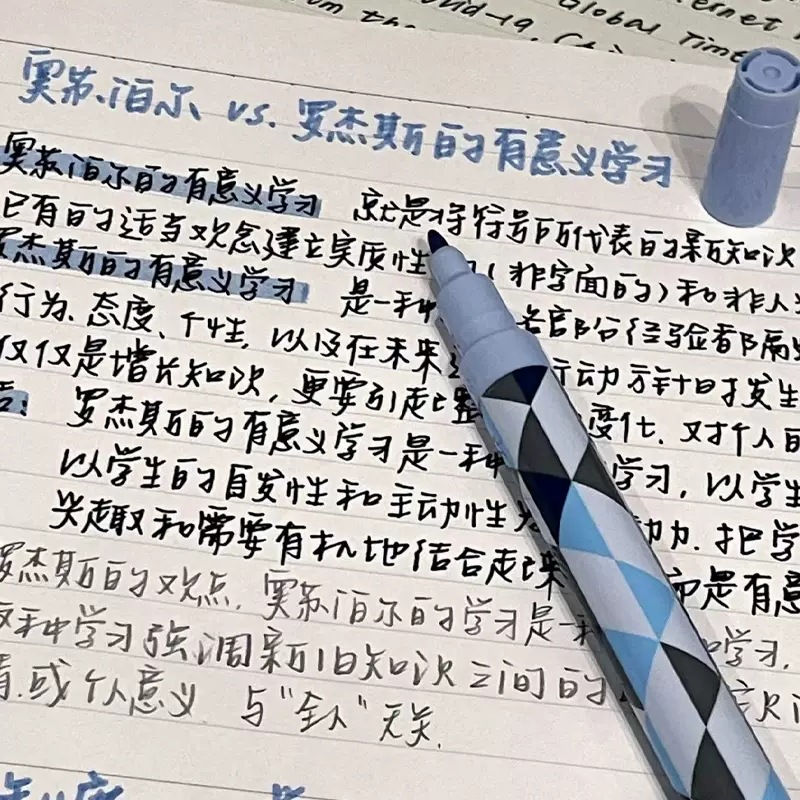 ternet
om the Covid-19. Global Time
奥苏泊尔 vs. 罗杰斯的有意义学习
奥苏泊尔的有意义学习 就是将符号所代表的新知识
已有的适当观念建立实质性 (非字面的)和非人
罗杰斯的有意义学习 是一种 各部分经验都隔
行为、态度、个性,以及在未来 行动方针时发生
仅仅是增长知识,更要引起 整 变化.对个人的
罗杰斯的有意义学习是一种 学习,以学生
以学生的自发性和主动性为 动力.把学
兴趣和需要有机地结合起来 而是有意
罗杰斯的观点.奥苏泊尔的学习是一 学习.
这种学习强调新旧知识之间的
情.或个人意义 与"全人"无关.